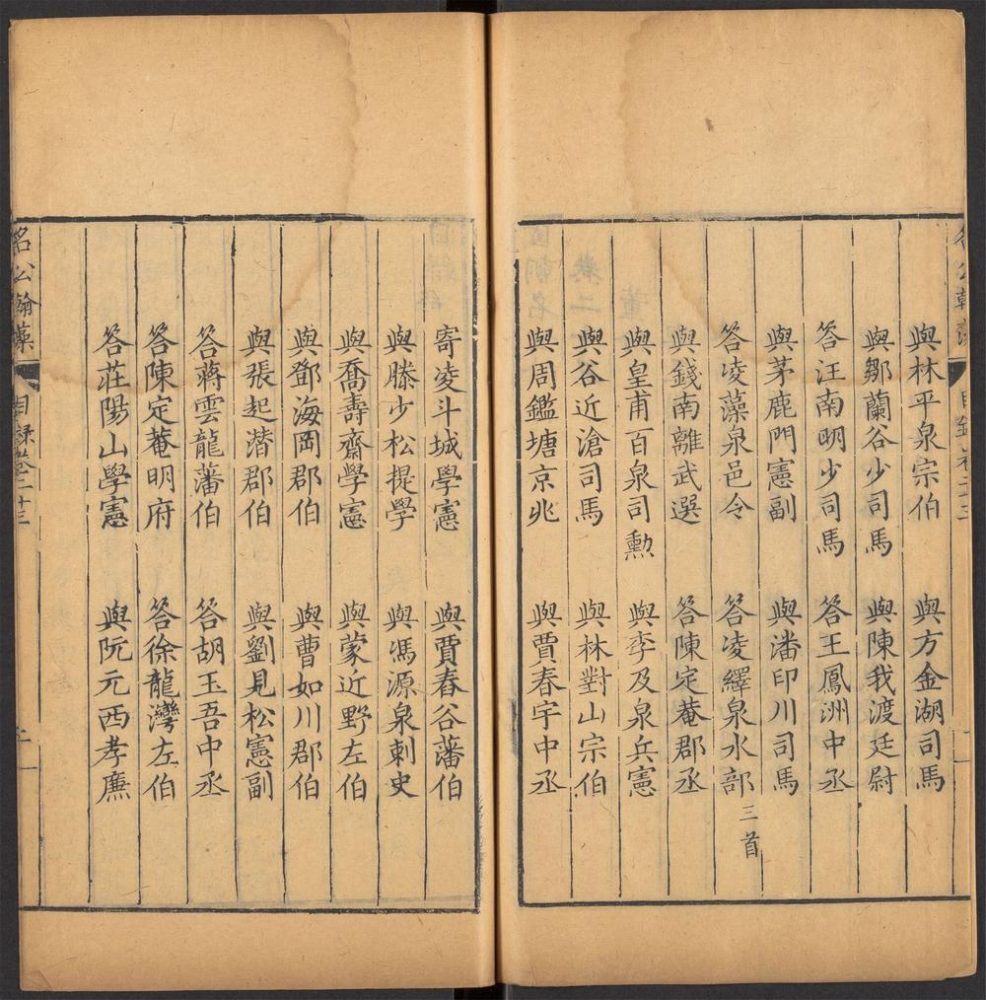 與林平泉宗伯　與方金湖司馬
與鄒蘭谷少司馬　與陳我渡廷尉
答汪南明少司馬　答王鳳洲中丞
與茅鹿門憲副　與潘印川司馬
答凌藻泉邑令　答凌繹泉水部三首
與錢南離武選　答陳定菴郡丞
與皇甫百泉司勲　與李及泉兵憲
與谷近滄司馬　與林對山宗伯
與周鑑塘京兆　與賈春宇中丞
寄凌斗城學憲　與賈春谷藩伯
與滕少松提學　與馮源泉刺史
與喬壽齋學憲　與蒙近野左伯
與鄧海岡郡伯　與曹如川郡伯
與張起潜郡伯　與劉見松憲副
答蔣雲龍藩伯　答胡玉吾中丞
答陳定菴明府　答徐龍灣左伯
答莊陽山學憲　與阮元西孝廉
名公翰藻　目錄卷二十三